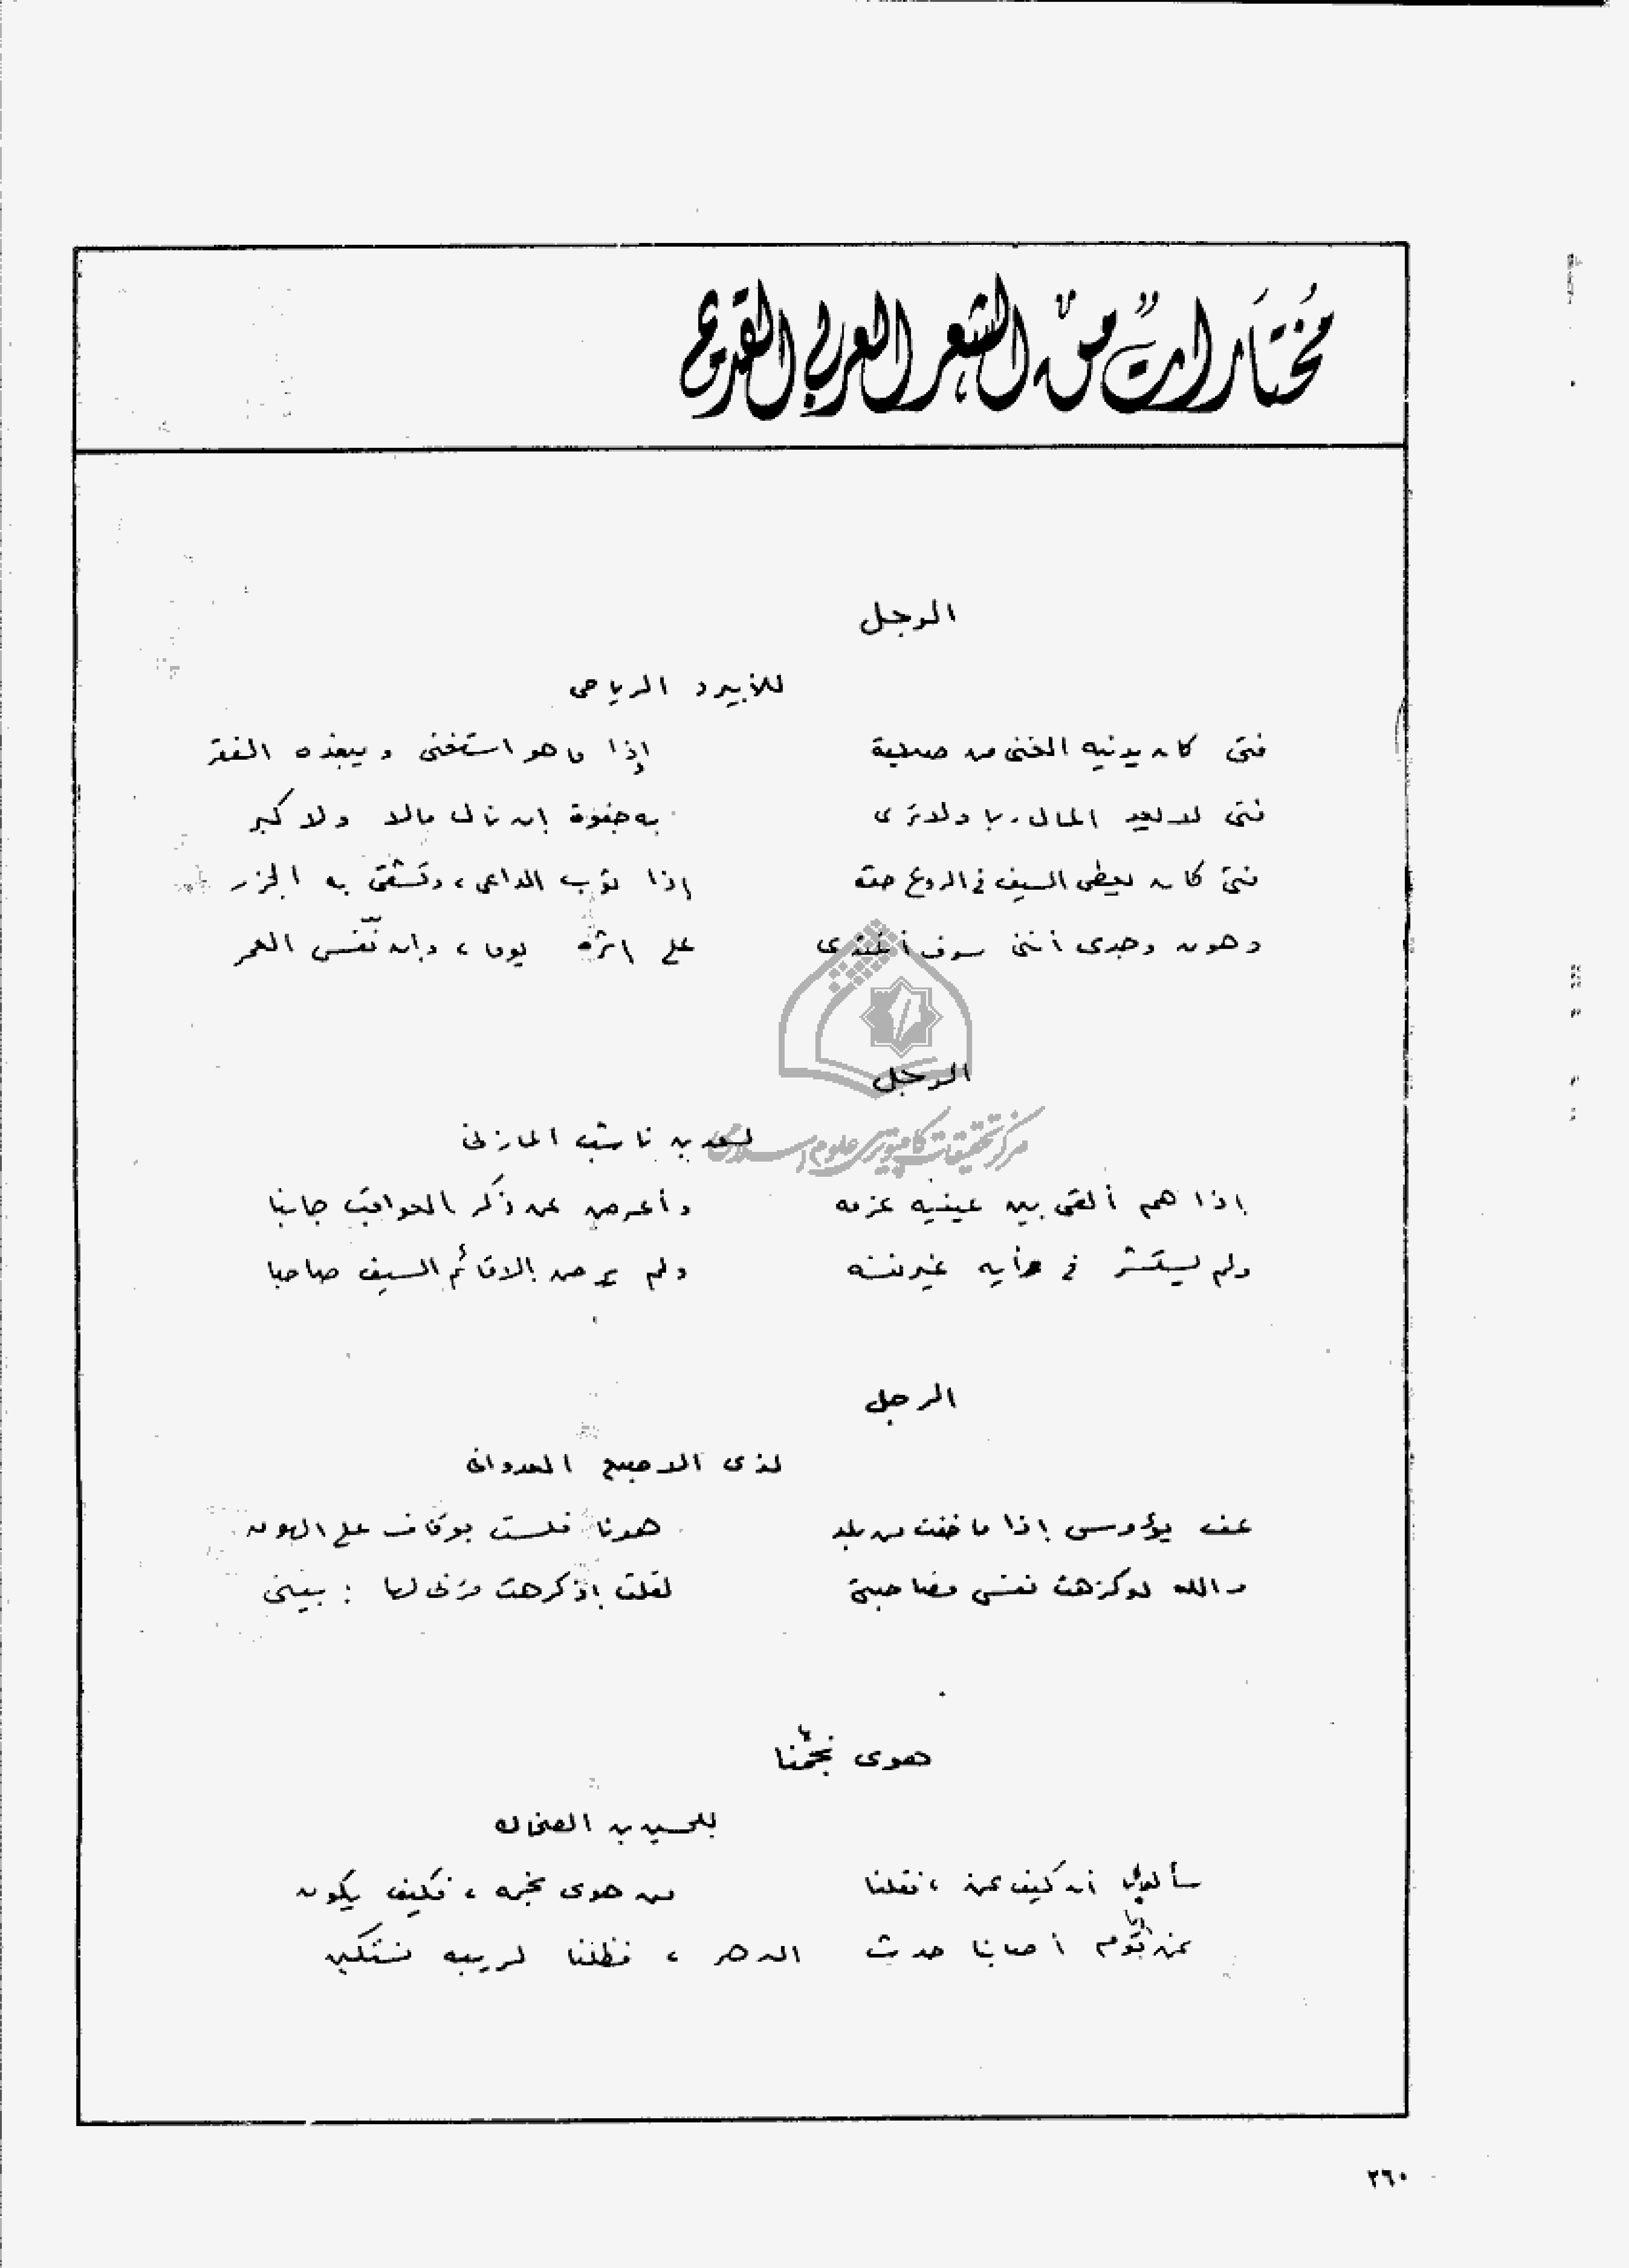 مُختَاراتٌ من الشعر العربي القديم
الرجل
للأبيرد الرياحى
فتى كان يدنيه الغنى من صديقه إذا ما هو استغنى ويبعده الفقر
فتى لا يعد المال ربا ولا ترى به جفوة إن نال مالا ولا كبر
فتى كان يعطى السيف فى الروع حقه إذا ثوب الداعى، وتشقى به الجزر
وهون وجدى أننى سوف أغتدى على اثره يوما، وإن نفّس العمر
الرجل
لسعد بن ناشب المازنى
إذا هم ألقى بين عينيه عزمه وأعرض عن ذكر العواقب جانبا
ولم يستشر فى رأيه غير نفسه ولم يرض إلا قائم السيف صاحبا
الرجل
لذى الاصبع العدوانى
عف يؤوس إذا ما خفت من بلد هونا فلست بوقاف على الهون
والله لو كرهت نفسى مصاحبتى لقلت إذ كرهت قربى لها : بينى
هوى نجمُنا
للحسين بن الضحاك
سألونا أن كيف نحن، فقلنا من هوى نجمه، فكيف يكون
نحن قوم أصابنا حدث الدهر، فظلنا لريبه نستكين
مركز تحقيقات كامپيوترى علوم اسلامى
٢٦٠